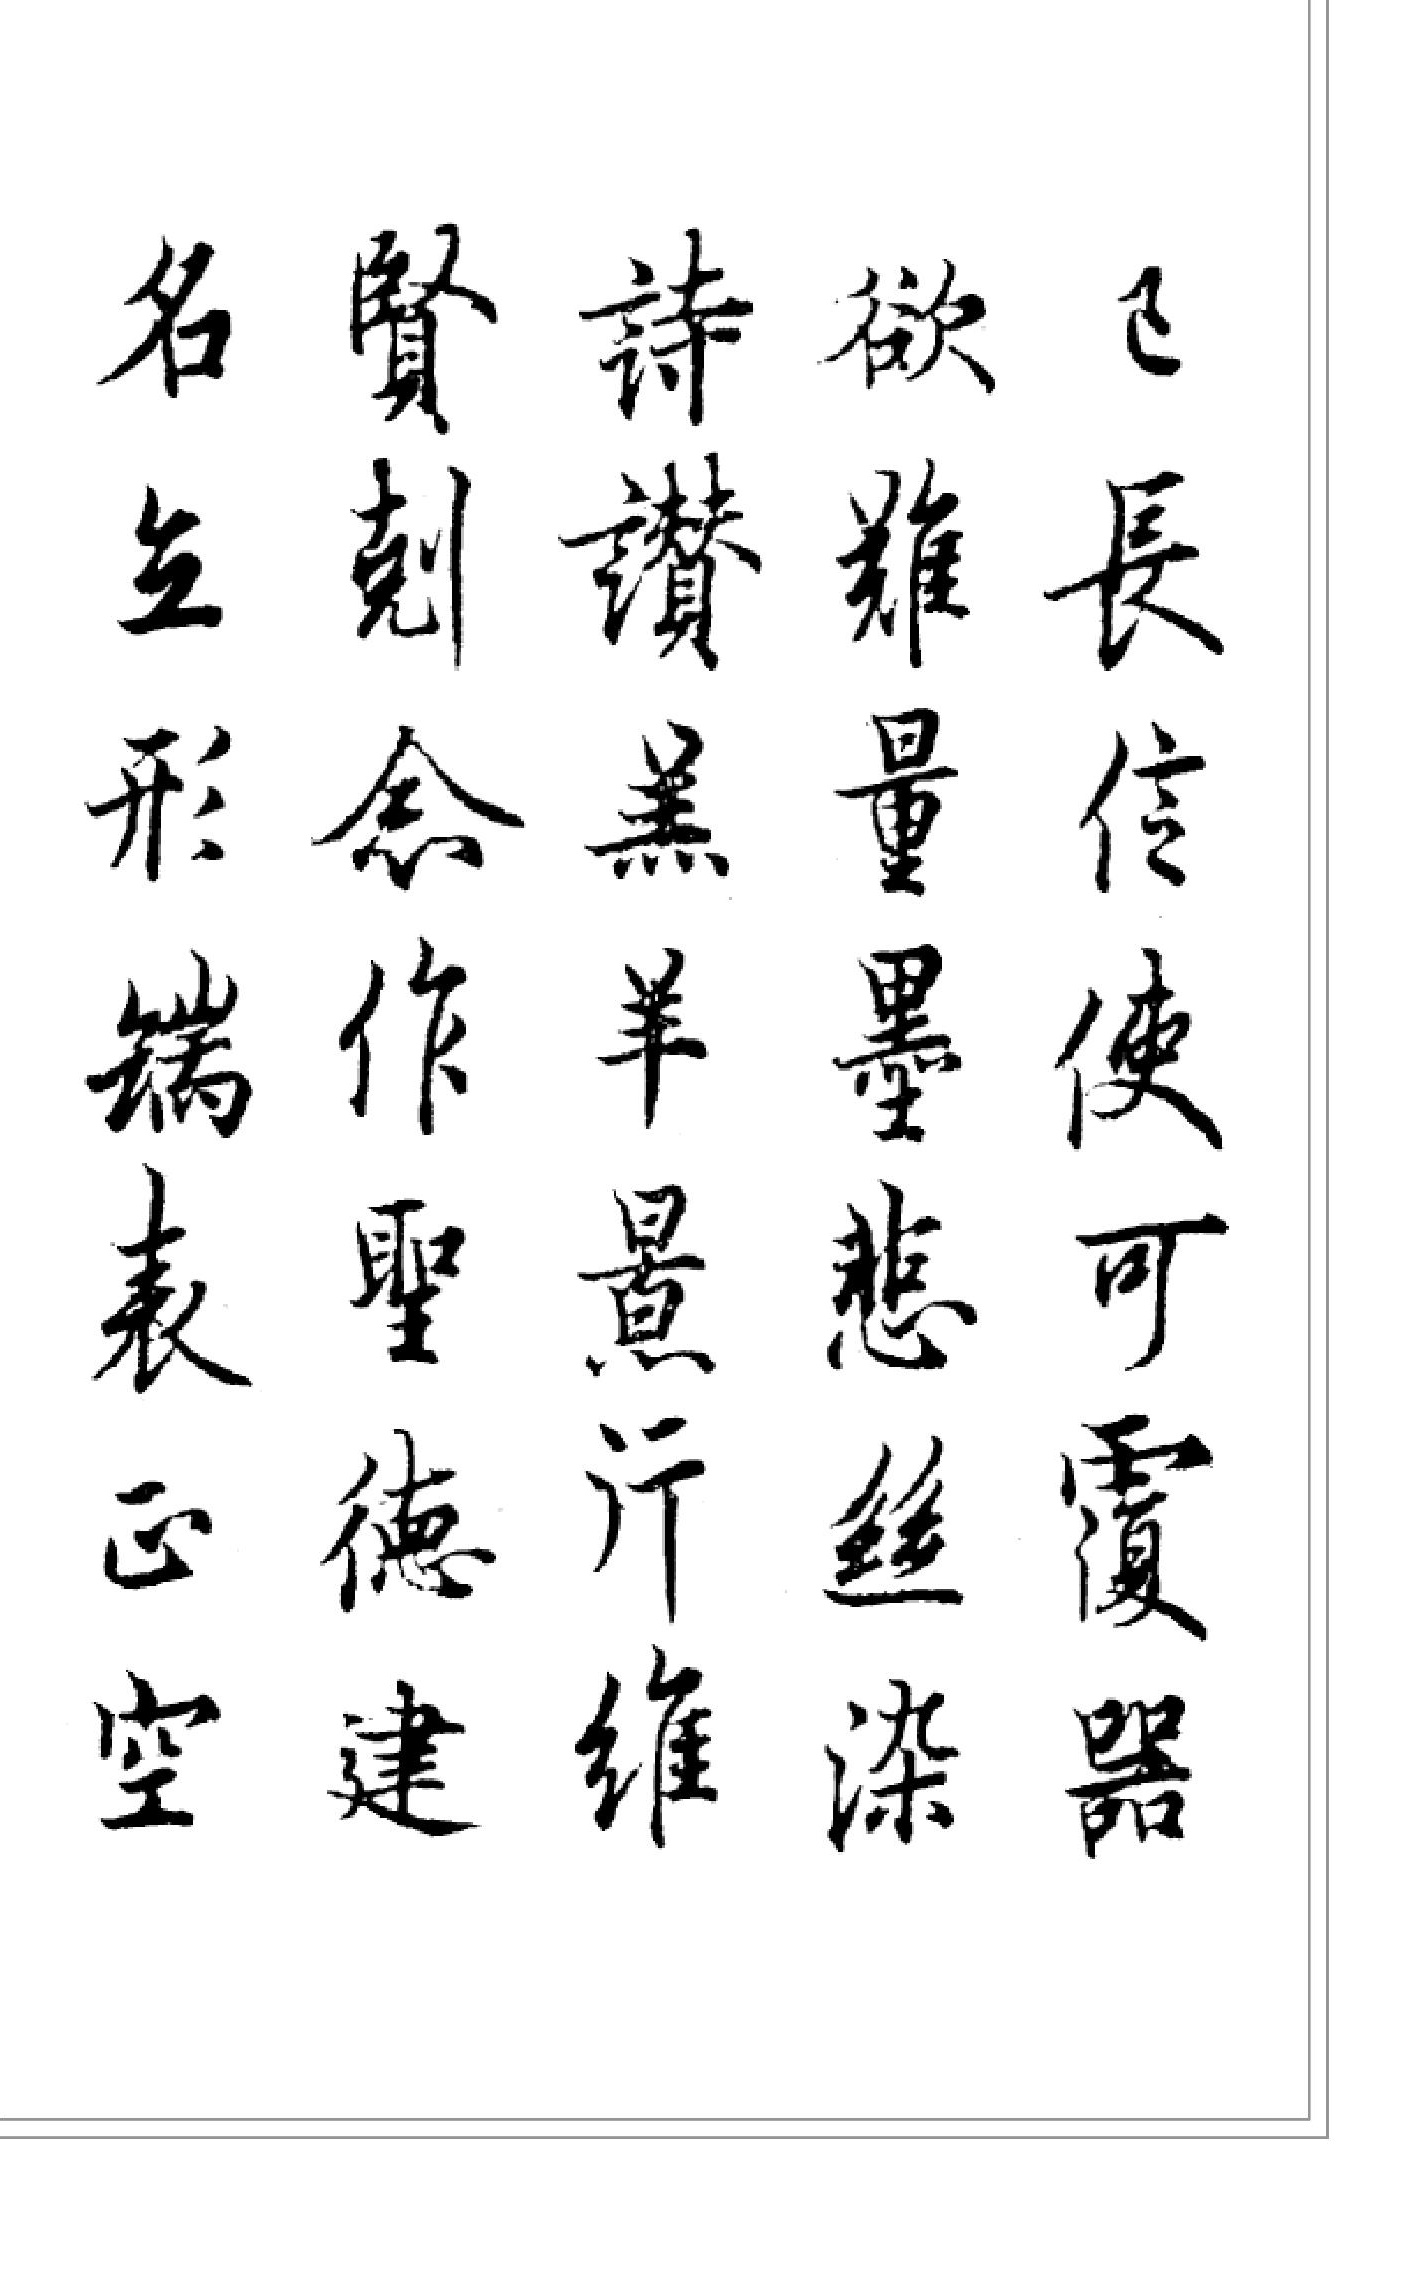 己長信使可覆器
欲難量墨悲絲染
詩讃羔羊景行維
賢剋念作聖德建
名立形端表正空